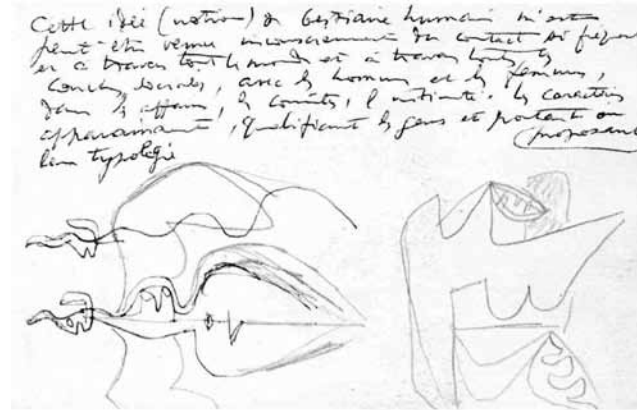 Cette idée (notion) de bestiaire humain m'est
peut-être venue inconsciemment du contact si fréquent
et à travers tout le monde et à travers toutes les
couches sociales, avec les hommes et les femmes,
dans les affaires, les comités, l'intimité. les caractères
apparaissent, qualifiant les gens et portant ou
proposant
leur typologie